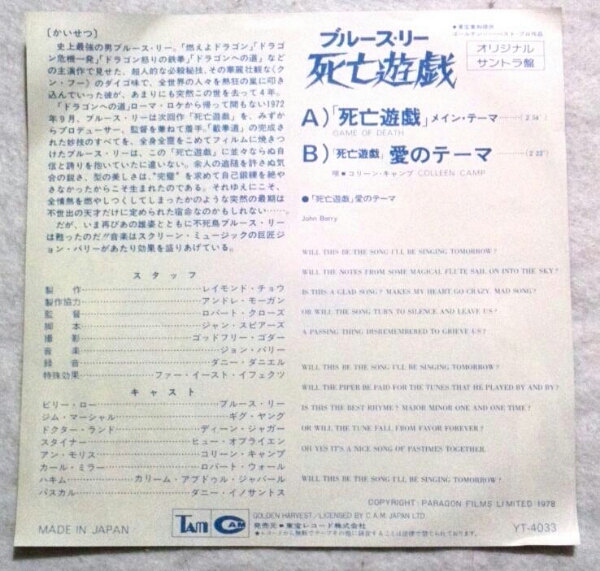 〔かいせつ〕
史上最強の男ブルース・リー。「燃えよドラゴン」「ドラゴ
ン危機一発」「ドラゴン怒りの鉄拳」「ドラゴンへの道」など
の主演作で見せた、超人的な必殺秘技、その華麗壮観な〈ク
ン・フー〉のダイゴ味で、全世界の人々を熱狂の嵐に叩き
込んでいった彼が、あまりにも突然この世を去って4年。
「ドラゴンへの道」ローマ・ロケから帰って間もない1972
年9月、ブルース・リーは次回作「死亡遊戯」を、みずか
らプロデューサー、監督を兼ねて着手。「截拳道」の完成され
た妙技のすべてを、全身全霊をこめてフィルムに焼きつ
けたブルース・リーは、この「死亡遊戯」に並々ならぬ自
信と誇りを抱いていたに違いない。余人の追随を許さぬ気
合の鋭さ、型の美しさは、"完璧"を求めて自己鍛練を絶や
さなかったからこそ生まれたのである。それゆえにこそ、
全情熱を燃やしつくしてしまったかのような突然の最期は
不世出の天才だけに定められた宿命なのかもしれない……。
だが、いま再びあの雄姿とともに不死鳥ブルース・リー
は甦ったのだ!!音楽はスクリーン・ミュージックの巨匠ジ
ョン・バリーがあたり効果を盛りあげている。
スタッフ
製作 レイモンド・チョウ
製作協力 アンドレ・モーガン
監督 ロバート・クローズ
脚本 ジャン・スピアーズ
撮影 ゴッドフリー・ゴダー
音楽 ジョン・バリー
録音 ダニー・ダニエル
特殊効果 ファー・イースト・イフェクツ
キャスト
ビリー・ロー ブルース・リー
ジム・マーシャル ギグ・ヤング
ドクター・ランド ディーン・ジャガー
スタイナー ヒュー・オブライエン
アン・モリス コリーン・キャンプ
カール・ミラー ロバート・ウォール
ハキム カリーム・アブドゥル・ジャバール
パスカル ダニー・イノサントス
MADE IN JAPAN
ブルース・リー
死亡遊戯
オリジナル
サントラ盤
A)「死亡遊戯」メイン・テーマ
GAME OF DEATH
B)「死亡遊戯」愛のテーマ
唄■コリーン・キャンプ COLLEEN CAMP
●「死亡遊戯」愛のテーマ
John Barry
WILL THIS BE THE SONG I'LL BE SINGING TOMORROW?
WILL THE NOTES FROM SOME MAGICAL FLUTE SAIL ON INTO THE SKY?
IS THIS A GLAD SONG? MAKES MY HEART GO CRAZY, MAD SONG?
OR WILL THE SONG TURN TO SILENCE AND LEAVE US?
A PASSING THING DISREMEMBERED TO GRIEVE US?
WILL THIS BE THE SONG I'LL BE SINGING TOMORROW?
WILL THE PIPER BE PAID FOR THE TUNES THAT HE PLAYED BY AND BY?
IS THIS THE BEST RHYME? MAJOR MINOR ONE AND ONE TIME?
OR WILL THE TUNE FALL FROM FAVOR FOREVER?
OH YES IT'S A NICE SONG OF PASTIMES TOGETHER.
WILL THIS BE THE SONG I'LL BE SINGING TOMORROW?
COPYRIGHT: PARAGON FILMS LIMITED 1978
TAM CAM
GOLDEN HARVEST/LICENSED BY C.A.M. JAPAN LTD.
発売元●東宝レコード株式会社
●レコードから無断でテープその他に録音することは法律で禁じられております。
YT-4033